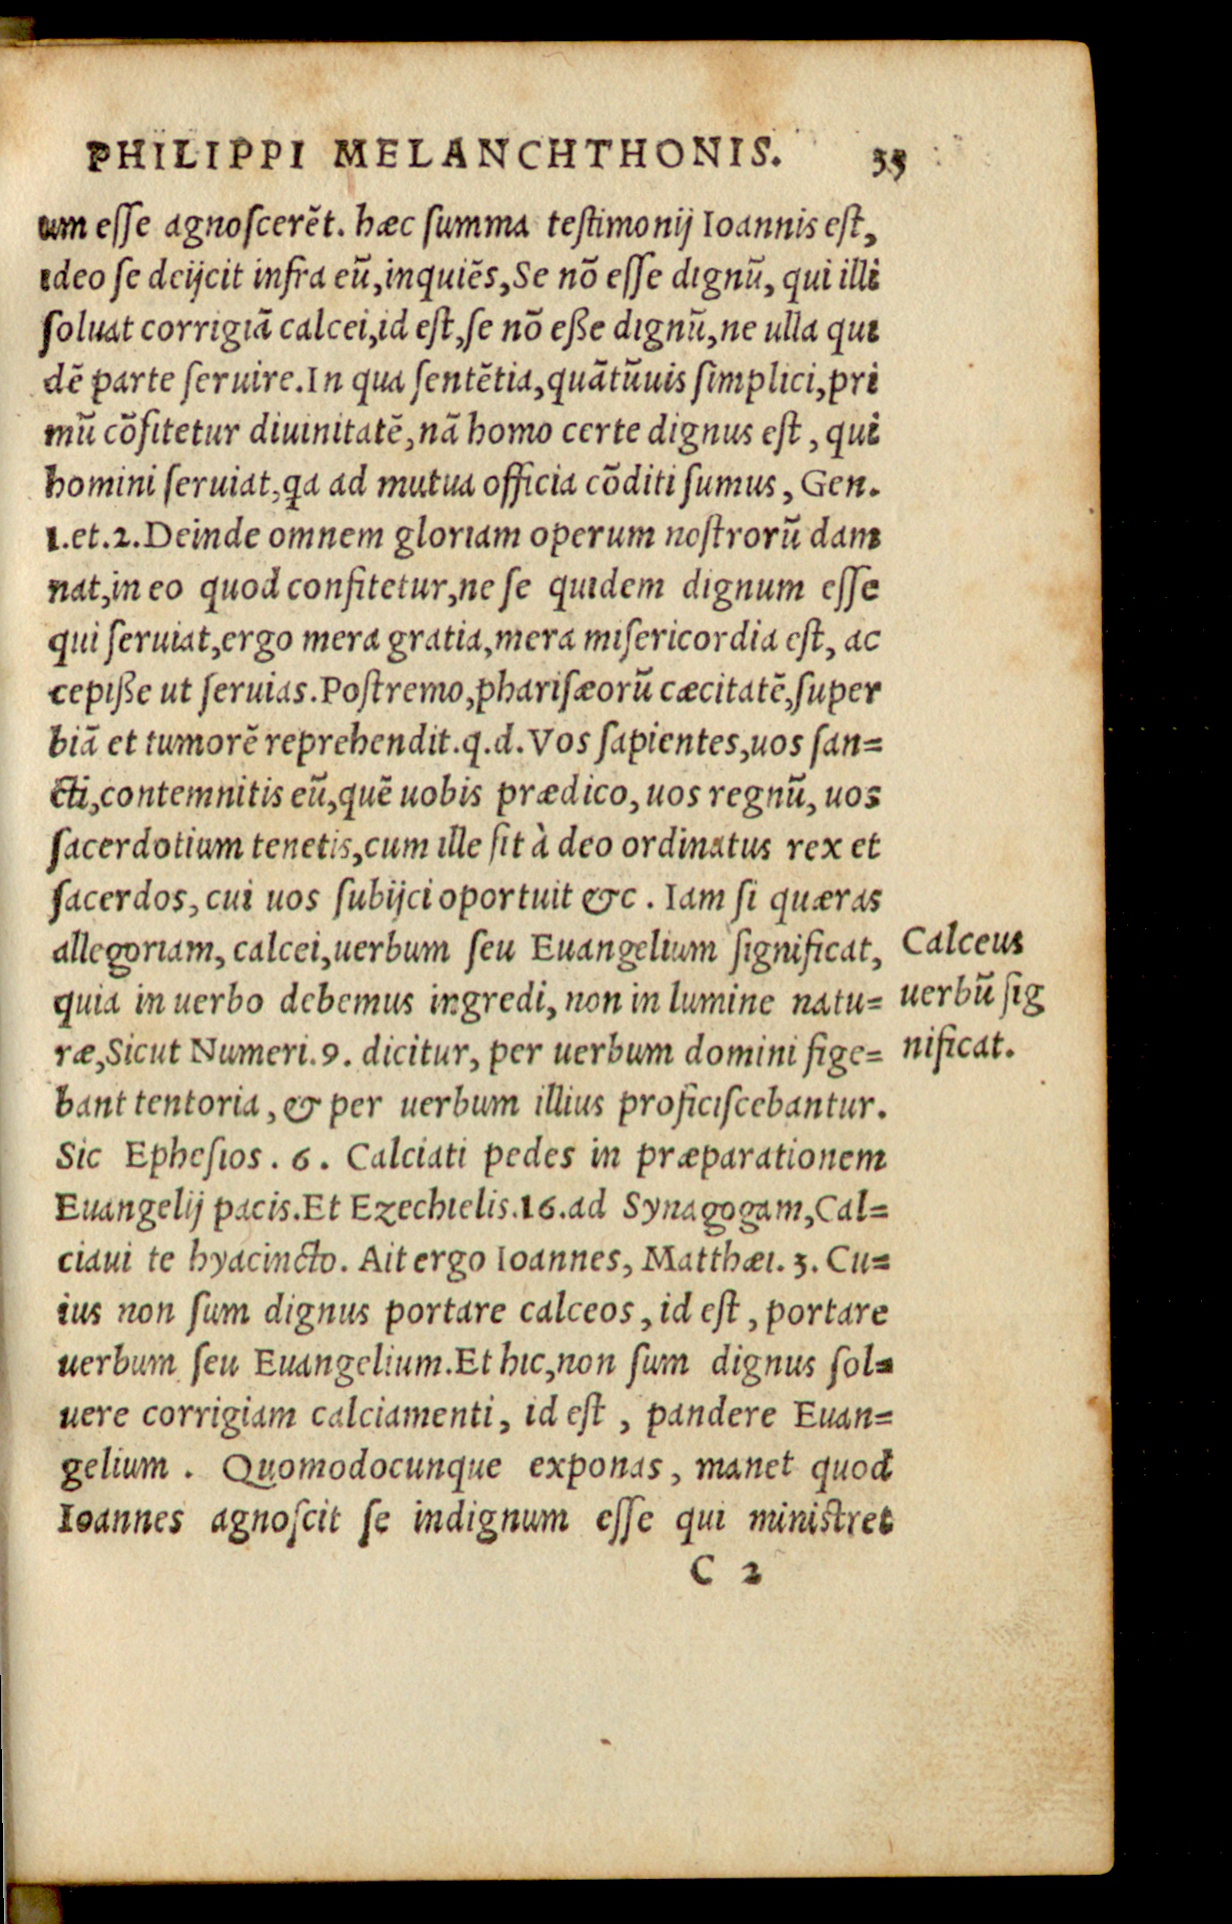 PHILIPPI MELANCHTHONIS. 35
um esse agnoscerēt. hæc summa testimonij Ioannis est,
ideo se deijcit infra eū,inquiēs,Se nō esse dignū, qui illi
soluat corrigiā calcei,id est,se nō eße dignū,ne ulla qui
dē parte seruire.In qua sentētia,quātūuis simplici,pri
mū cōfitetur diuinitatē,nā homo certe dignus est, qui
homini seruiat,qa ad mutua officia cōditi sumus, Gen.
1.et.2.Deinde omnem gloriam operum nostrorū dam
nat,in eo quod confitetur,ne se quidem dignum esse
qui seruiat,ergo mera gratia,mera misericordia est, ac
cepiße ut seruias.Postremo,pharisæorū cæcitatē,super
biā et tumorē reprehendit.q.d.Vos sapientes,uos san=
cti,contemnitis eū,quē uobis prædico, uos regnū, uos
sacerdotium tenetis,cum ille sit à deo ordinatus rex et
sacerdos, cui uos subijci oportuit &c. Iam si quæras
allegoriam, calcei,uerbum seu Euangelium significat,
quia in uerbo debemus ingredi, non in lumine natu=
ræ,Sicut Numeri.9. dicitur, per uerbum domini fige=
bant tentoria, & per uerbum illius proficiscebantur.
Sic Ephesios. 6. Calciati pedes in præparationem
Euangelij pacis.Et Ezechielis.16.ad Synagogam,Cal=
ciaui te hyacincto. Ait ergo Ioannes, Matthæi. 3. Cu=
ius non sum dignus portare calceos, id est, portare
uerbum seu Euangelium.Et hic,non sum dignus sol=
uere corrigiam calciamenti, id est, pandere Euan=
gelium. Quomodocunque exponas, manet quod
Ioannes agnoscit se indignum esse qui ministret
C 2
Calceus
uerbū sig
nificat.